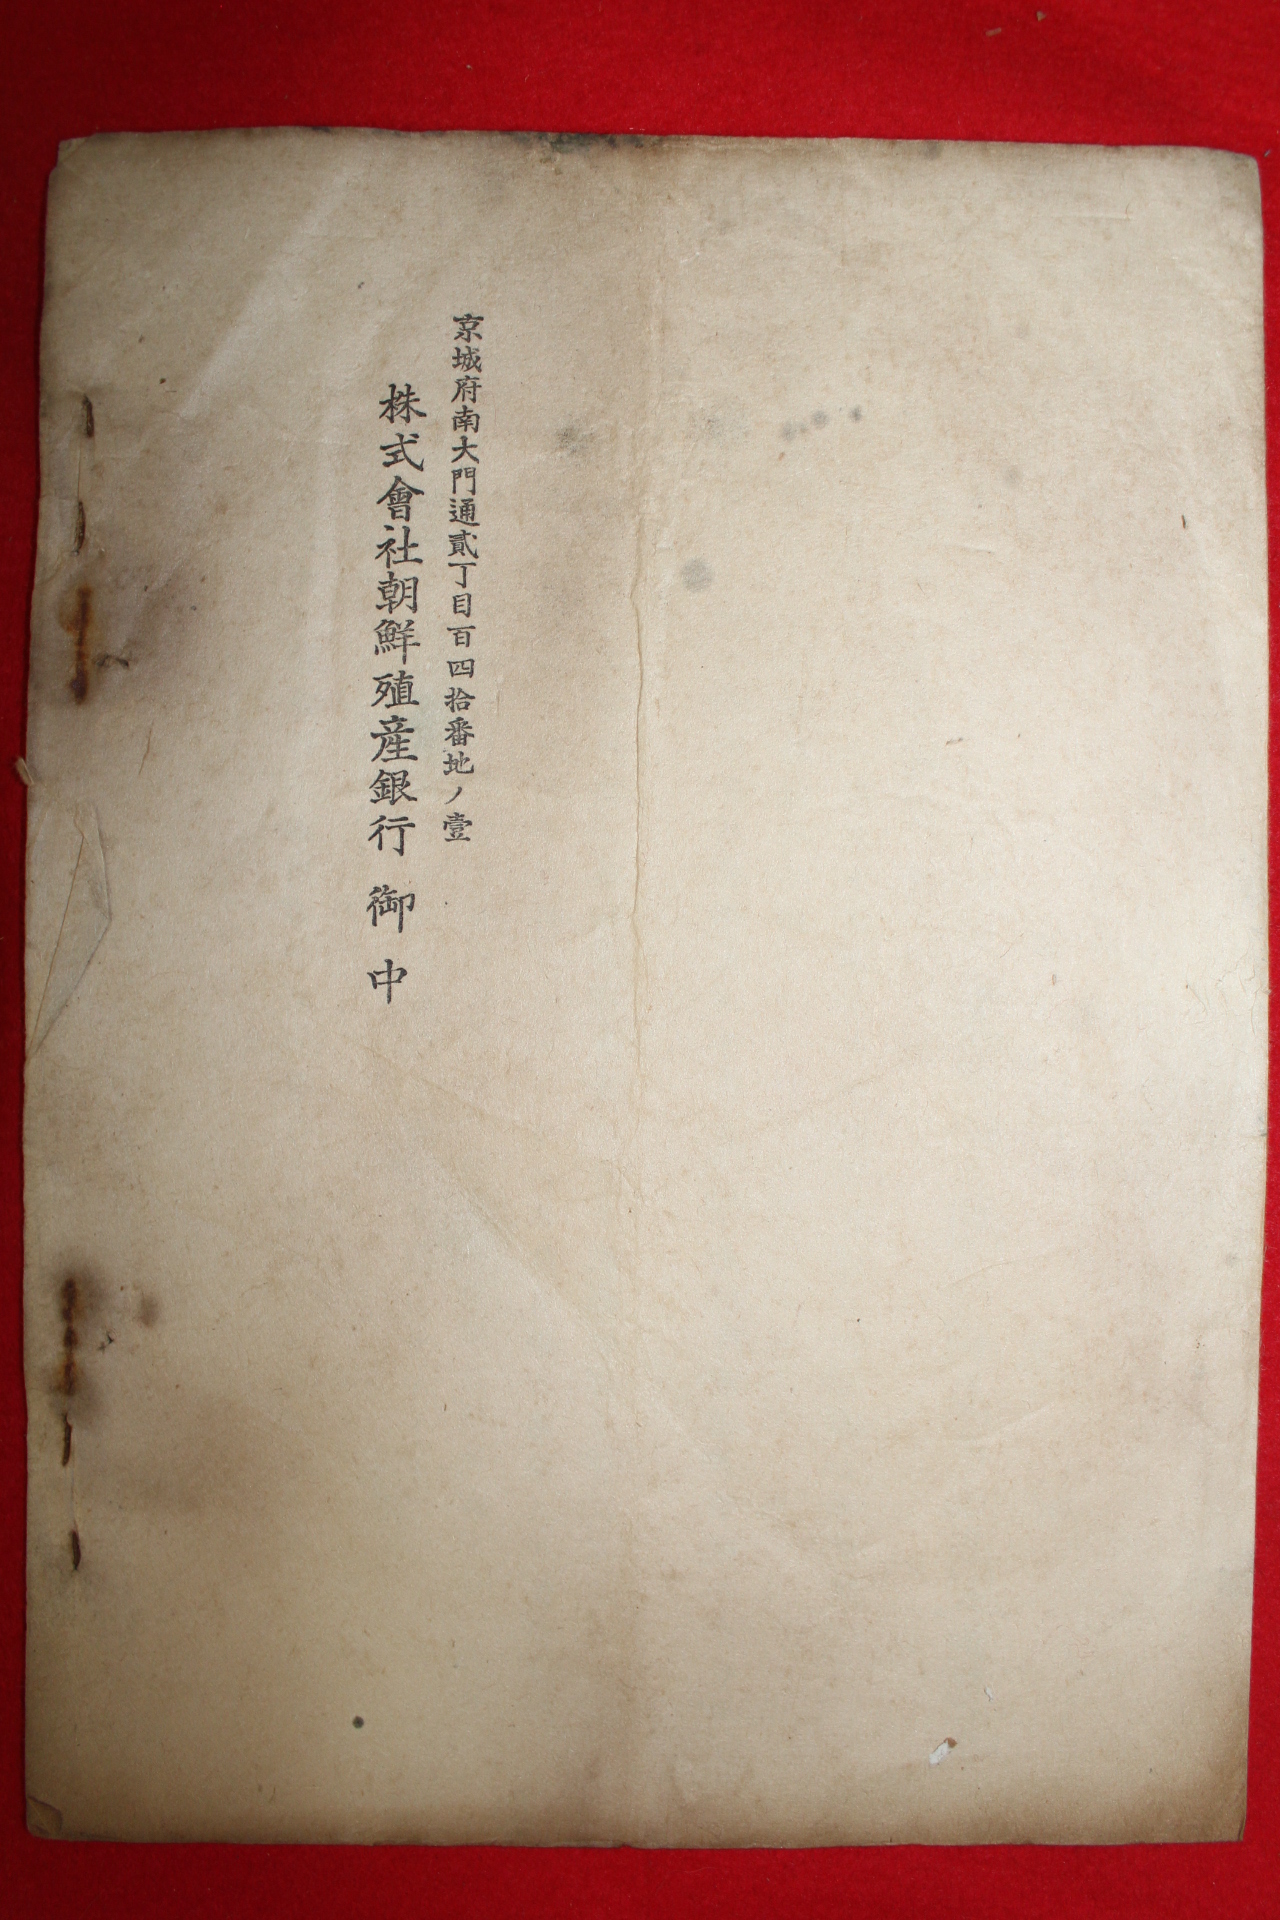 京城府南大門通貳丁目百四拾番地ノ壹
株式會社朝鮮殖産銀行 御中